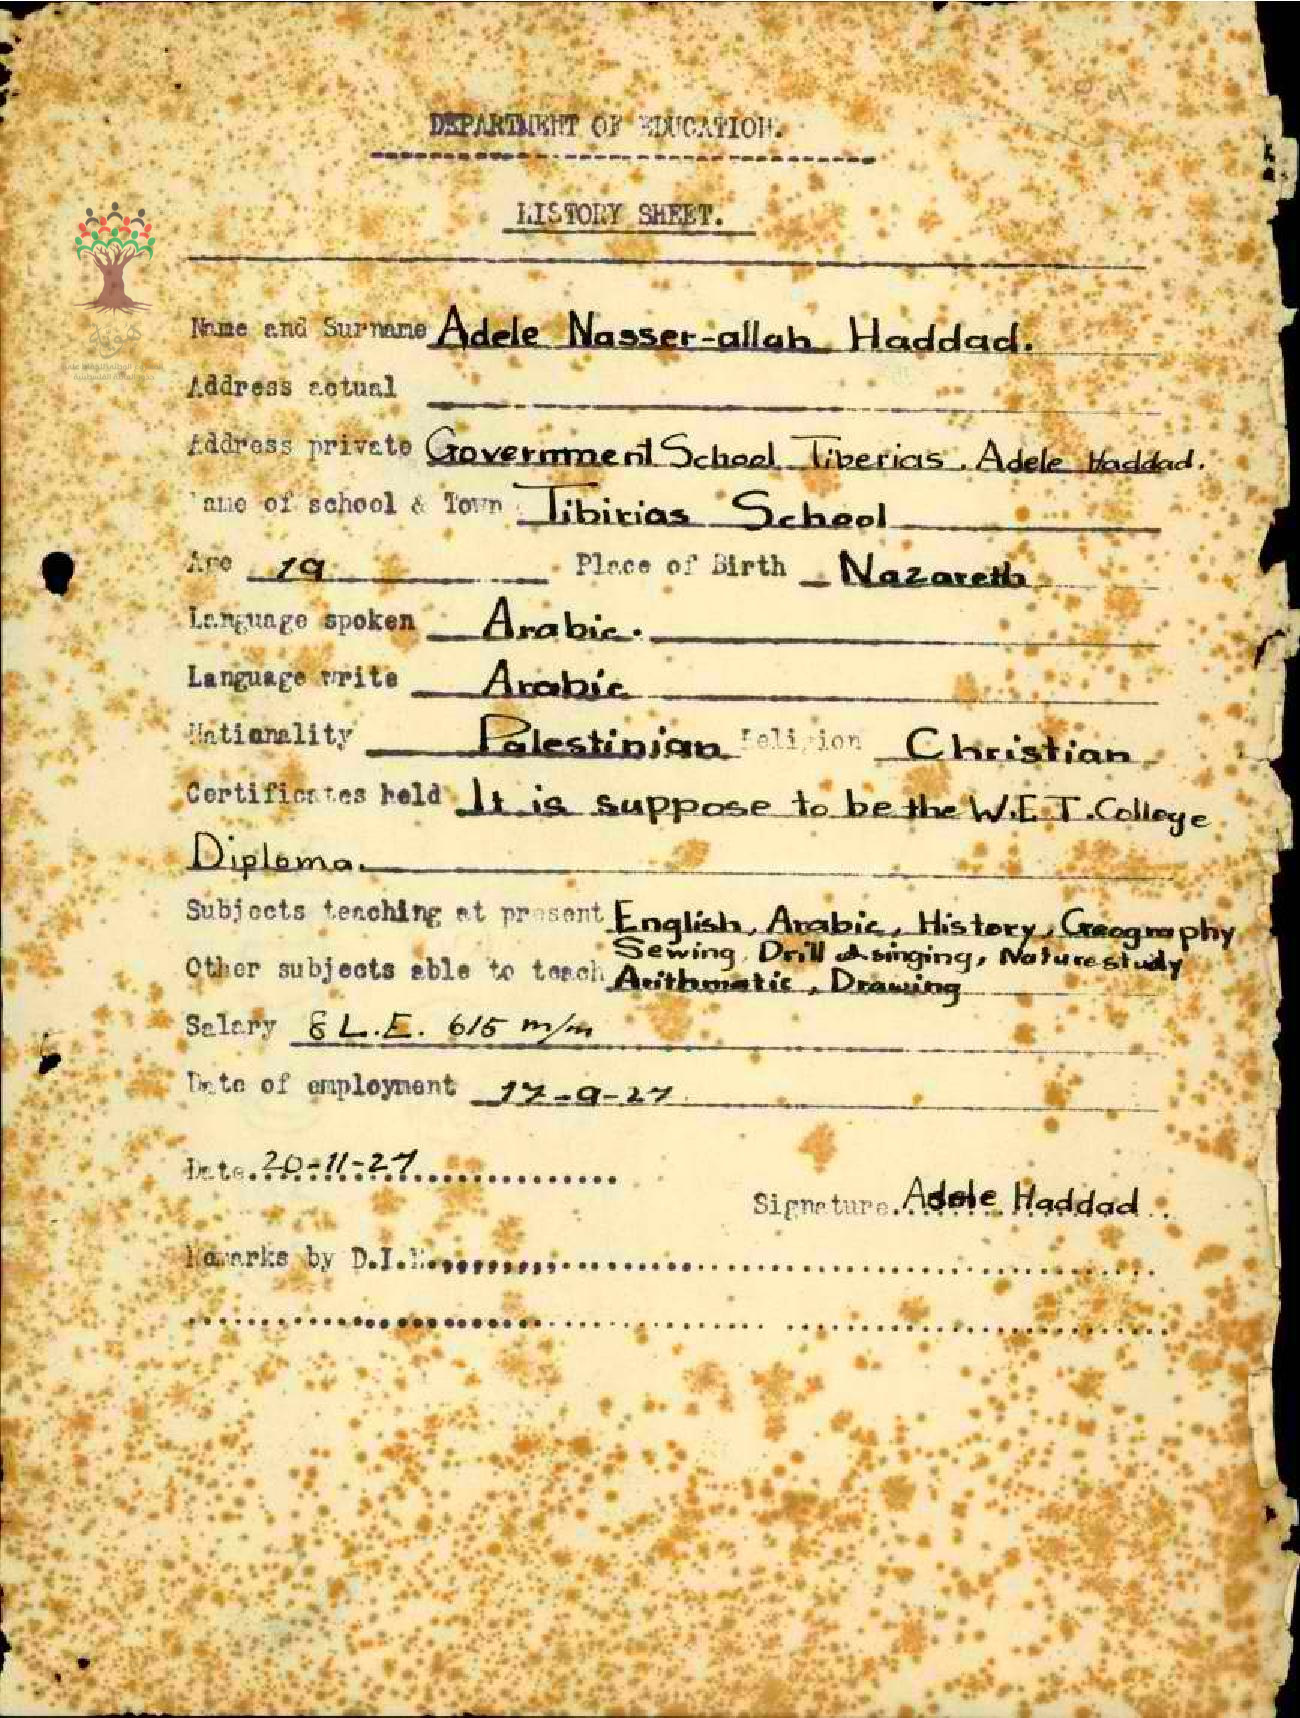 DEPARTMENT OF EDUCATION.
HISTORY SHEET.
هوية
Name and Surname Adele Nasser-allah Haddad.
Address actual
Address private Government School Tiberias. Adele Haddad.
Name of school & Town Tibirias School
Age 19 Place of Birth Nazareth
Language spoken Arabic.
Language write Arabic
Nationality Palestinian Religion Christian
Certificates held It is suppose to be the W.E.T. College
Diploma.
Subjects teaching at present English, Arabic, History, Geography
Sewing, Drill & singing, Nature study
Other subjects able to teach Arithmatic, Drawing
Salary 8 L.E. 615 m/m
Date of employment 17-9-27
Date. 20-11-27
Signature. Adele Haddad
Remarks by D.I.E.